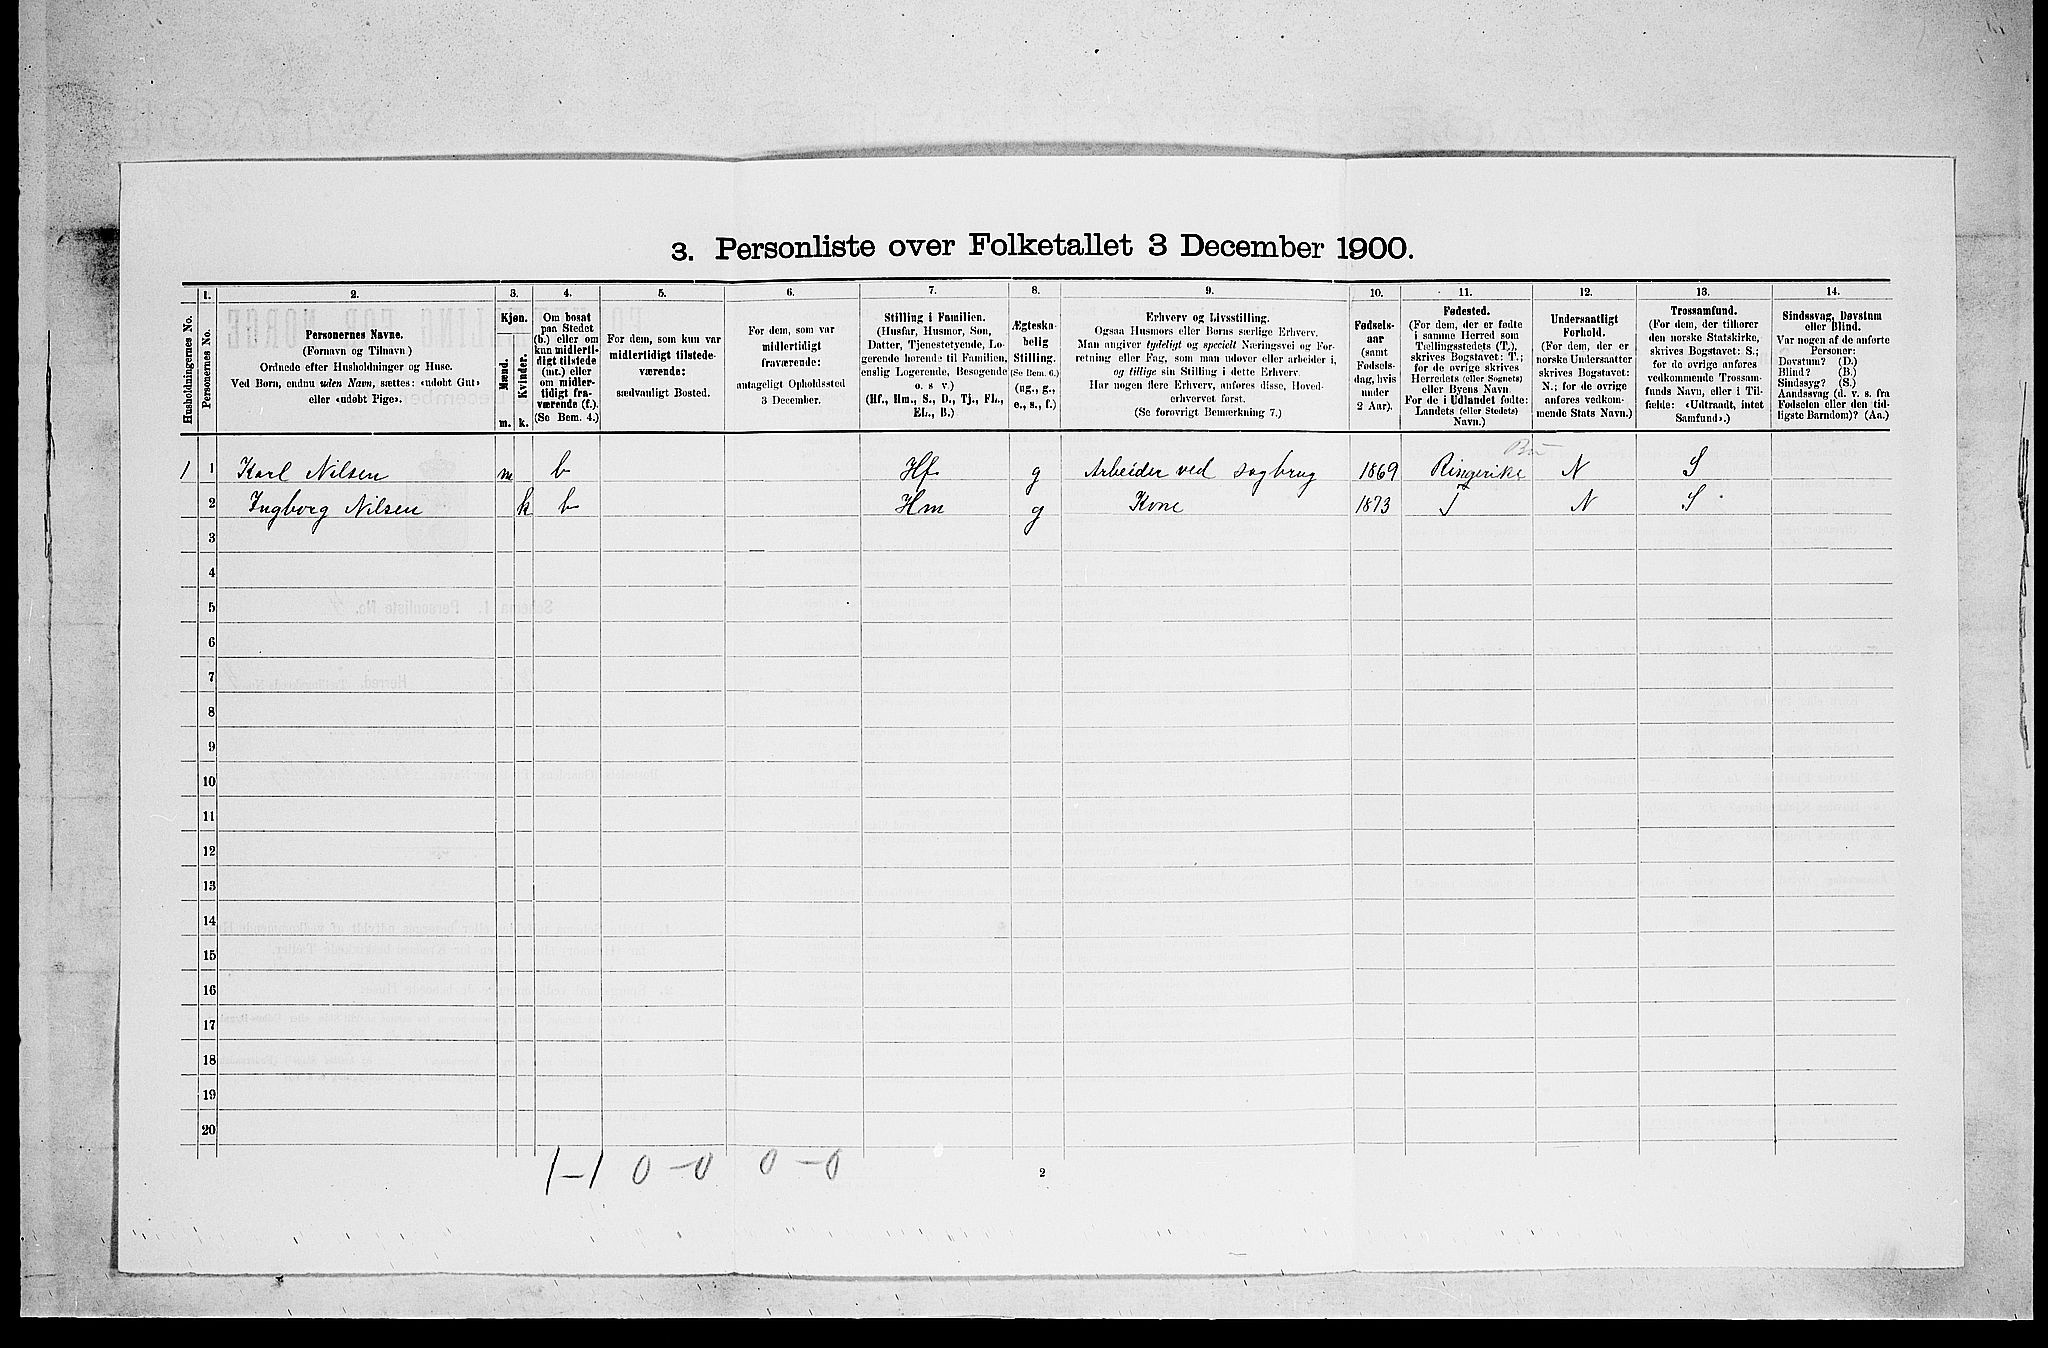 3. Personliste over Folketallet 3 December 1900.
1. 2. 3. 4. 5. 6. 7. 8. 9. 10. 11. 12. 13. 14.
Husholdningernes No.
Personernes No.
Personernes Navne.
(Fornavn og Tilnavn)
Ordnede efter Husholdninger og Huse.
Ved Børn, endnu uden Navn, sættes: «udøbt Gut»
eller «udøbt Pige».
Kjøn.
Mænd.
Kvinder.
m. k.
Om bosat
paa Stedet
(b.) eller om
kun midlerti-
digt tilstede
(mt.) eller
om midler-
tidigt fra-
værende (f.).
(Se Bem. 4.)
For dem, som kun var
midlertidigt tilstede-
værende:
sædvanligt Bosted.
For dem, som var
midlertidigt
fraværende:
antageligt Opholdssted
3 December.
Stilling i Familien.
(Husfar, Husmor, Søn,
Datter, Tjenestetyende, Lo-
gerende hørende til Familien,
enslig Logerende, Besøgende
o. s v.)
(Hf., Hm., S., D., Tj., FL.,
EL., B.)
Ægteska-
belig
Stilling.
(Se Bem. 6.)
(ug., g.,
e., s., f.)
Erhverv og Livsstilling.
Ogsaa Husmors eller Børns særlige Erhverv.
Man angiver tydeligt og specielt Næringsvei og For-
retning eller Fag, som man udøver eller arbeider i,
og tillige sin Stilling i dette Erhverv.
Har nogen flere Erhverv, anføres disse, Hoved-
erhvervet først.
(Se forøvrigt Bemærkning 7.)
Fødsels-
aar
(samt
Fødsels-
dag, hvis
under
2 Aar).
Fødested.
(For dem, der er fødte
i samme Herred som
Tællingsstedets (T.),
skrives Bogstavet: T.;
for de øvrige skrives
Herredets (eller Sognets)
eller Byens Navn.
For de i Udlandet fødte:
Landets (eller Stedets)
Navn.)
Undersaatligt
Forhold.
(For dem, der er
norske Undersaatter
skrives Bogstavet:
N.; for de øvrige
anføres vedkom-
mende Stats Navn.)
Trossamfund.
(For dem, der tilhører
den norske Statskirke,
skrives Bogstavet: S.;
for de øvrige anføres
vedkommende Trossam-
funds Navn, eller i Til-
fælde: «Udtraadt, intet
Samfund».)
Sindssvag, Døvstum
eller Blind.
Var nogen af de anførte
Personer:
Døvstum? (D.)
Blind? (B.)
Sindssyg? (S.)
Aandssvag (d. v. s. fra
Fødselen eller den tid-
ligste Barndom)? (Aa.)
Bu
1 1 Karl Nilsen m b Hf g Arbeider ved sagbrug 1869 Ringerike N S
2 Ingborg Nilsen k b Hm g Kone 1873 T N S
3
4
5
6
7
8
9
10
11
12
13
14
15
16
17
18
19
20
1-1 0-0 0-0
2